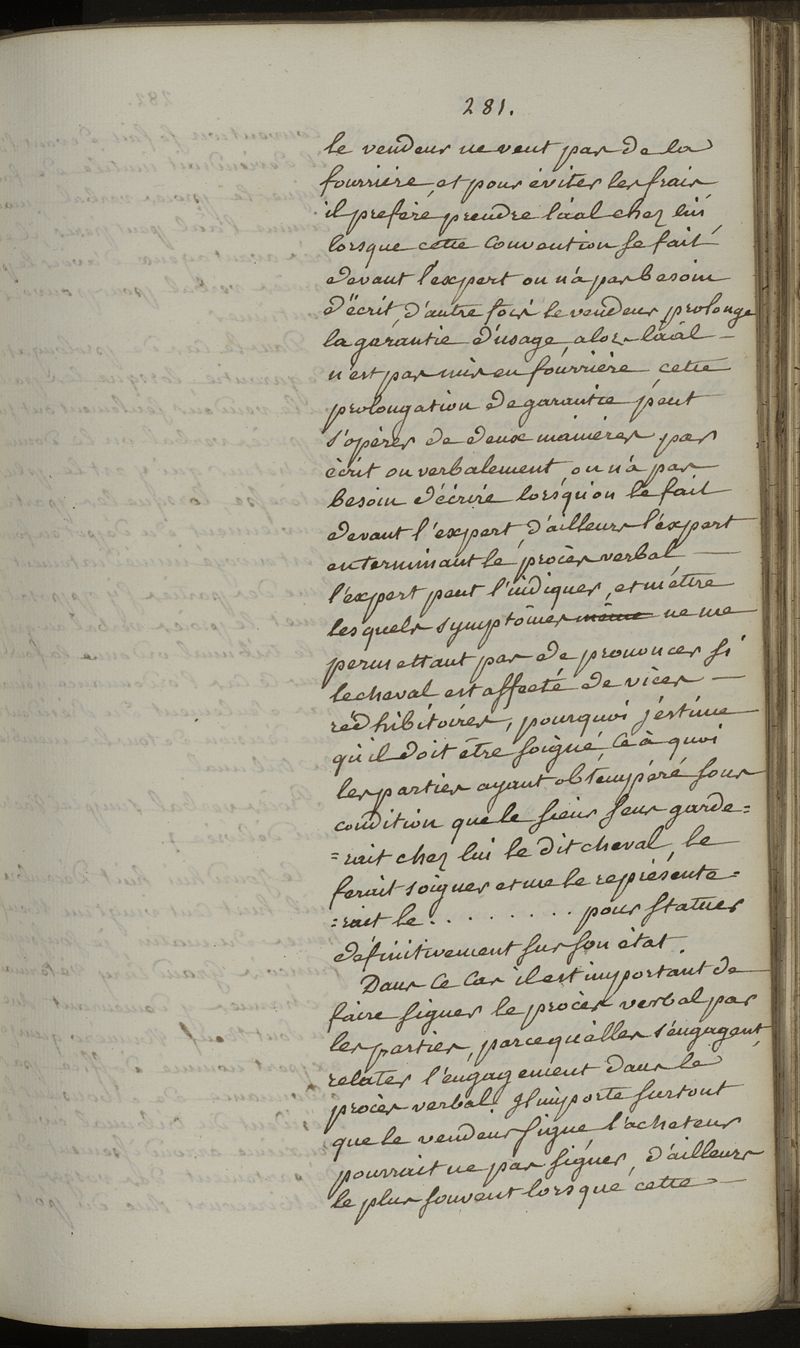 281.
le vendeur ne veut pas de la
fourrière, et pour éviter les frais
il preferé prendre l'aal chez lui,
lorsque cette convention se fait
devant l'expert on n'a pas besoin
d'écrit, d'autre fois le vendeur prolonge
la garantie d'usage, alors l'aal —
n'est pas mis en fourrière, cette
prolongation de garantie peut
s'opérer de deux manières, par
écrit ou verbalement, on n'a pas
besoin d'écrire lorsqu'on le fait
devant l'expert, d'ailleurs l'expert
en terminant le procès verbal —
l'expert peut l'indiquer, et mettre
les quels symptômes même ne me
permettant pas de prononcer si
le cheval est affecté de vices —
rédhibitoires, pourquoi j'estime
qu'il doit être soigné, ce à quoi
les parties ayant obtempéré sous
condition que le sieur seur garde=
=rait chez lui le dit cheval, le
ferait soigner et me le représente=
=rait le . . . . . . . . pour statuer
définitivement sur son état.
Dans ce cas il est important de
faire signer le procès verbal par
les parties, parcequ'elles s'engagent,
relater l'engagement dans le
procès verbal. Il importe surtout
que le vendeur signe l'acheteur
pourrait ne pas signer, d'ailleurs
le plus souvent lorsque cette —